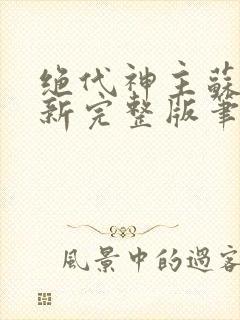 绝代神主蘇
新完整版筆
風景中的過客